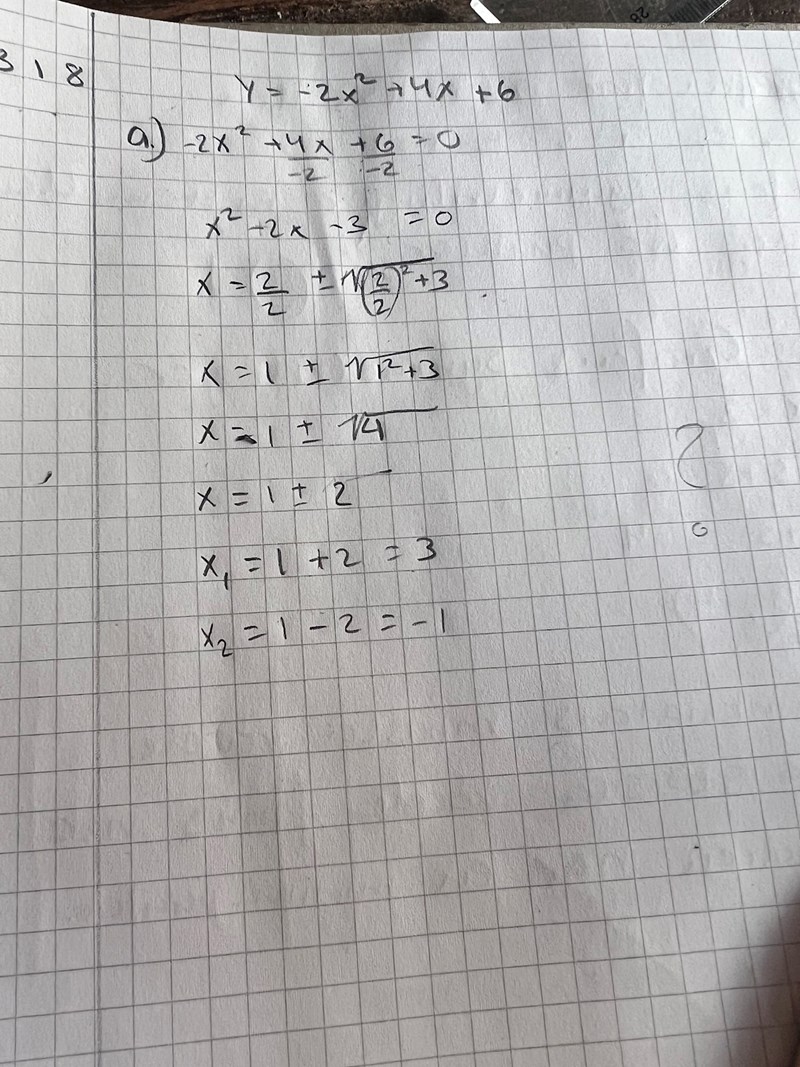 318
y = -2x² +4x +6
a.) -2x² +4x/-2 +6/-2 = 0
x² -2x -3 = 0
x = 2/2 ± √(2/2)²+3
x = 1 ± √1²+3
x = 1 ± √4
x = 1 ± 2
x₁ = 1 + 2 = 3
x₂ = 1 - 2 = -1
?